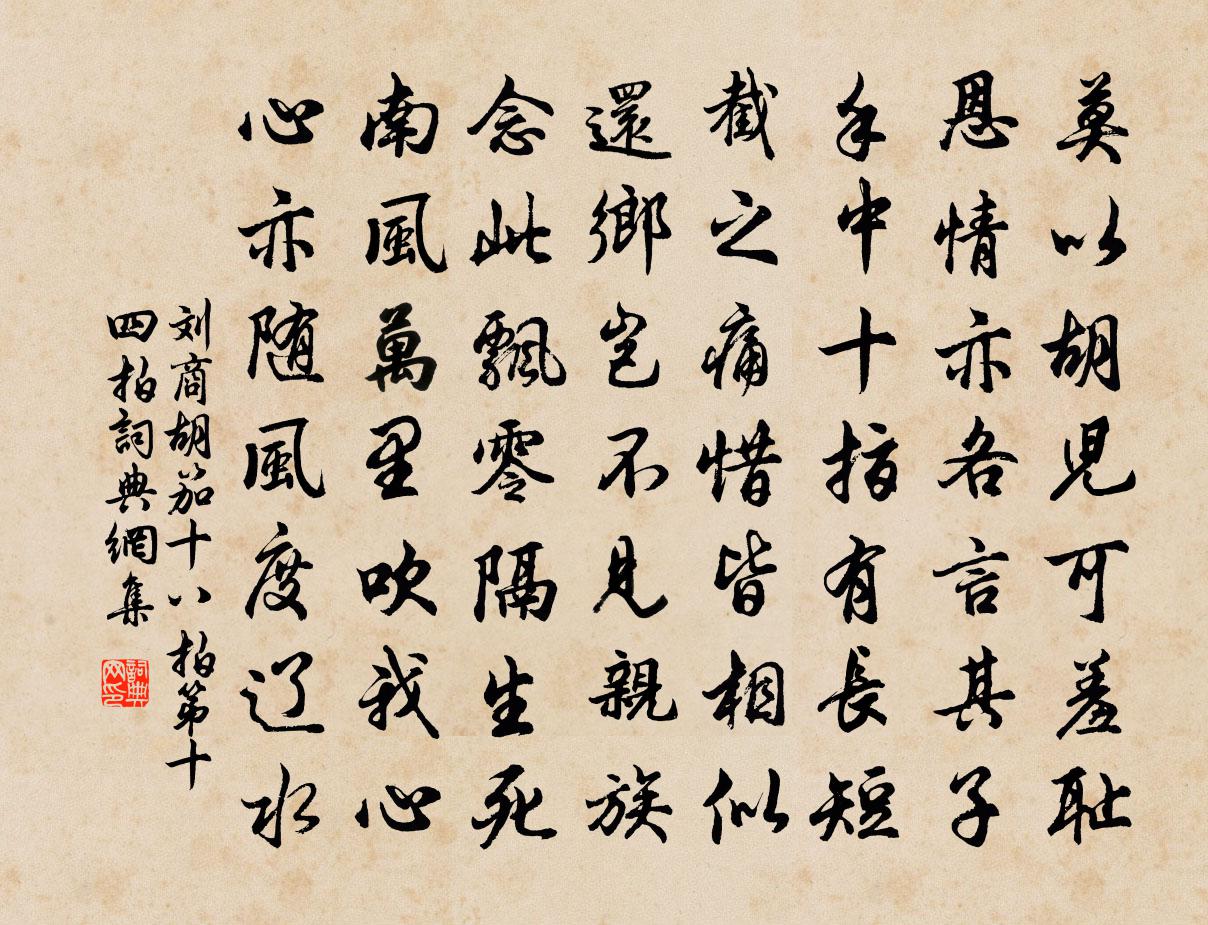 莫以胡兒可羞恥
恩情亦各言其子
手中十指有長短
截之痛惜皆相似
還鄉豈不見親族
念此飄零隔生死
南風萬里吹我心
心亦随風度辽水
刘商胡笳十八拍第十
四拍詞典網集
詞典
网印